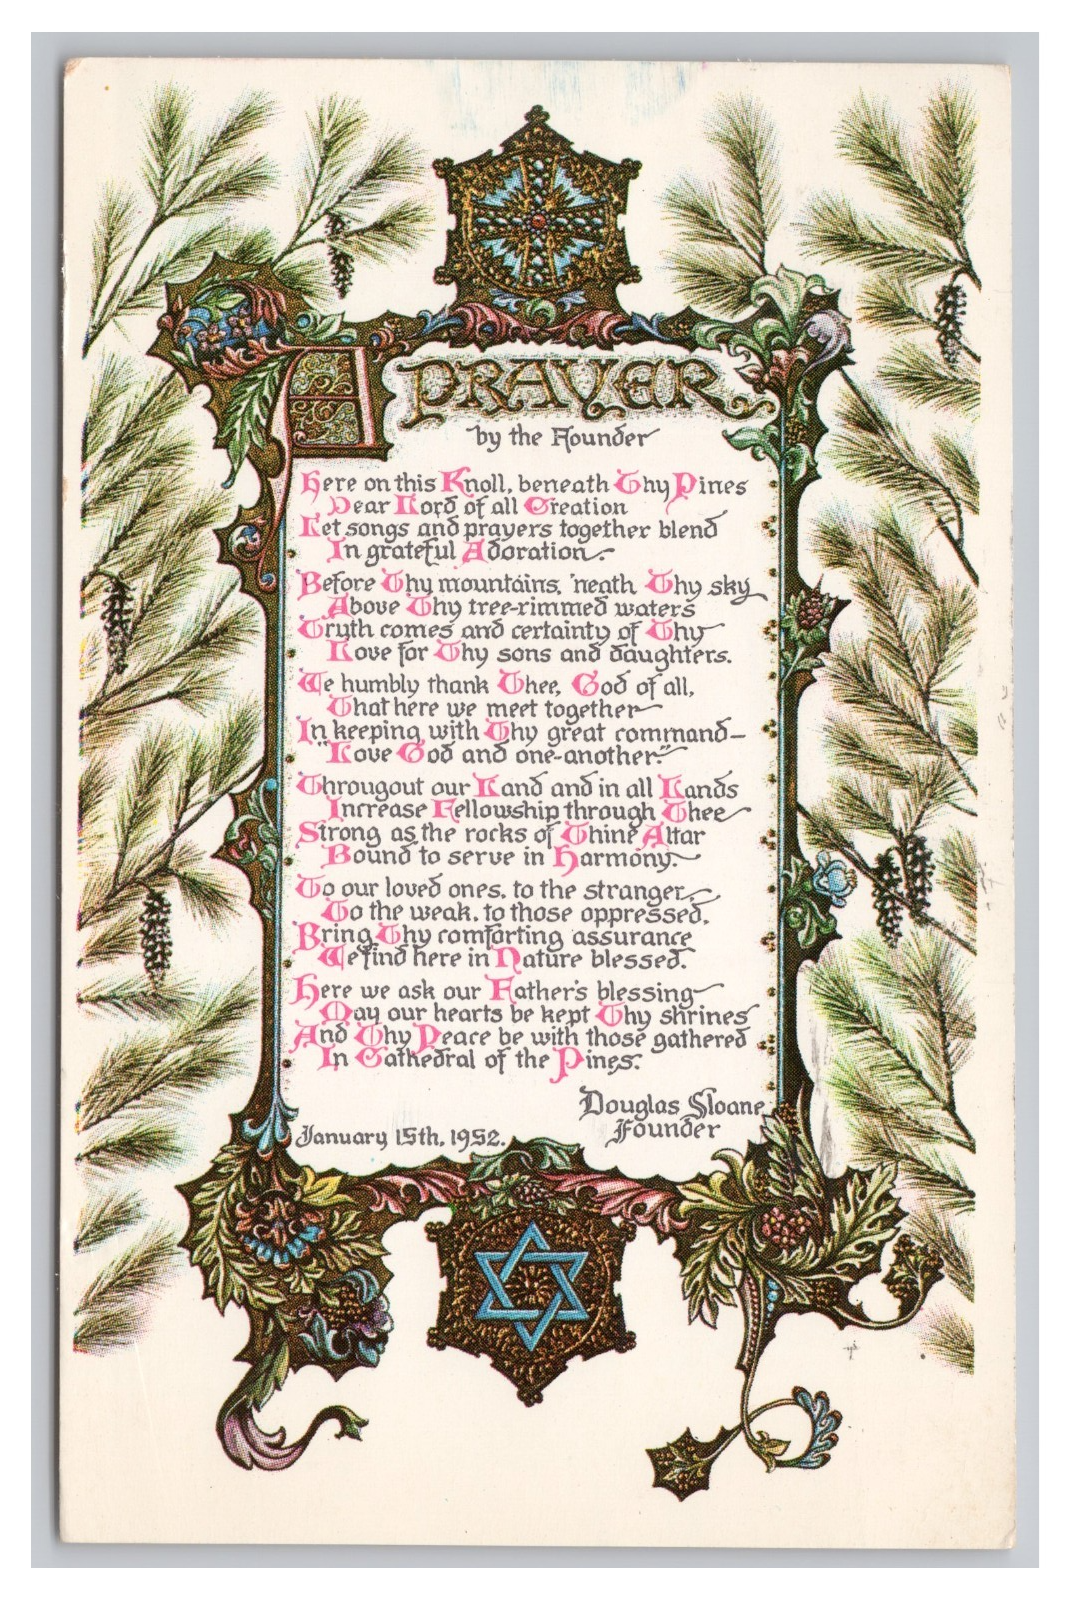 A PRAYER
by the Founder
Here on this Knoll, beneath Thy Pines
Dear Lord of all Creation
Let songs and prayers together blend
In grateful Adoration.
Before Thy mountains, 'neath Thy sky
Above Thy tree-rimmed waters
Truth comes and certainty of Thy
Love for Thy sons and daughters.
We humbly thank Thee, God of all,
That here we meet together
In keeping with Thy great command—
"Love God and one-another."
Througout our Land and in all Lands
Increase Fellowship through Thee
Strong as the rocks of Thine Altar
Bound to serve in Harmony.
To our loved ones, to the stranger,
To the weak, to those oppressed,
Bring Thy comforting assurance
We find here in Nature blessed.
Here we ask our Father's blessing
May our hearts be kept Thy shrines
And Thy Peace be with those gathered
In Cathedral of the Pines.
Douglas Sloane
Founder
January 15th, 1952.